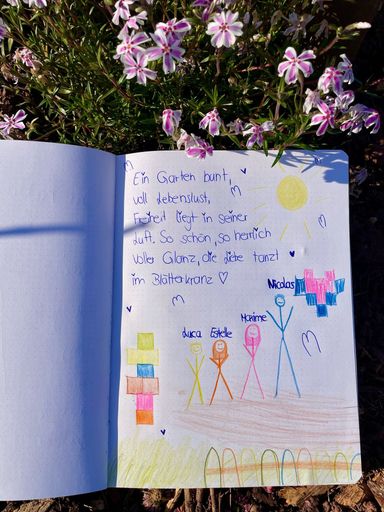 Ein Garten bunt,
voll Lebenslust,
Freiheit liegt in seiner
Luft. So schön, so herrlich
voller Glanz, die Liebe tanzt
im Blätterkranz ♡
Nicolas
Maxime
Luca Estelle